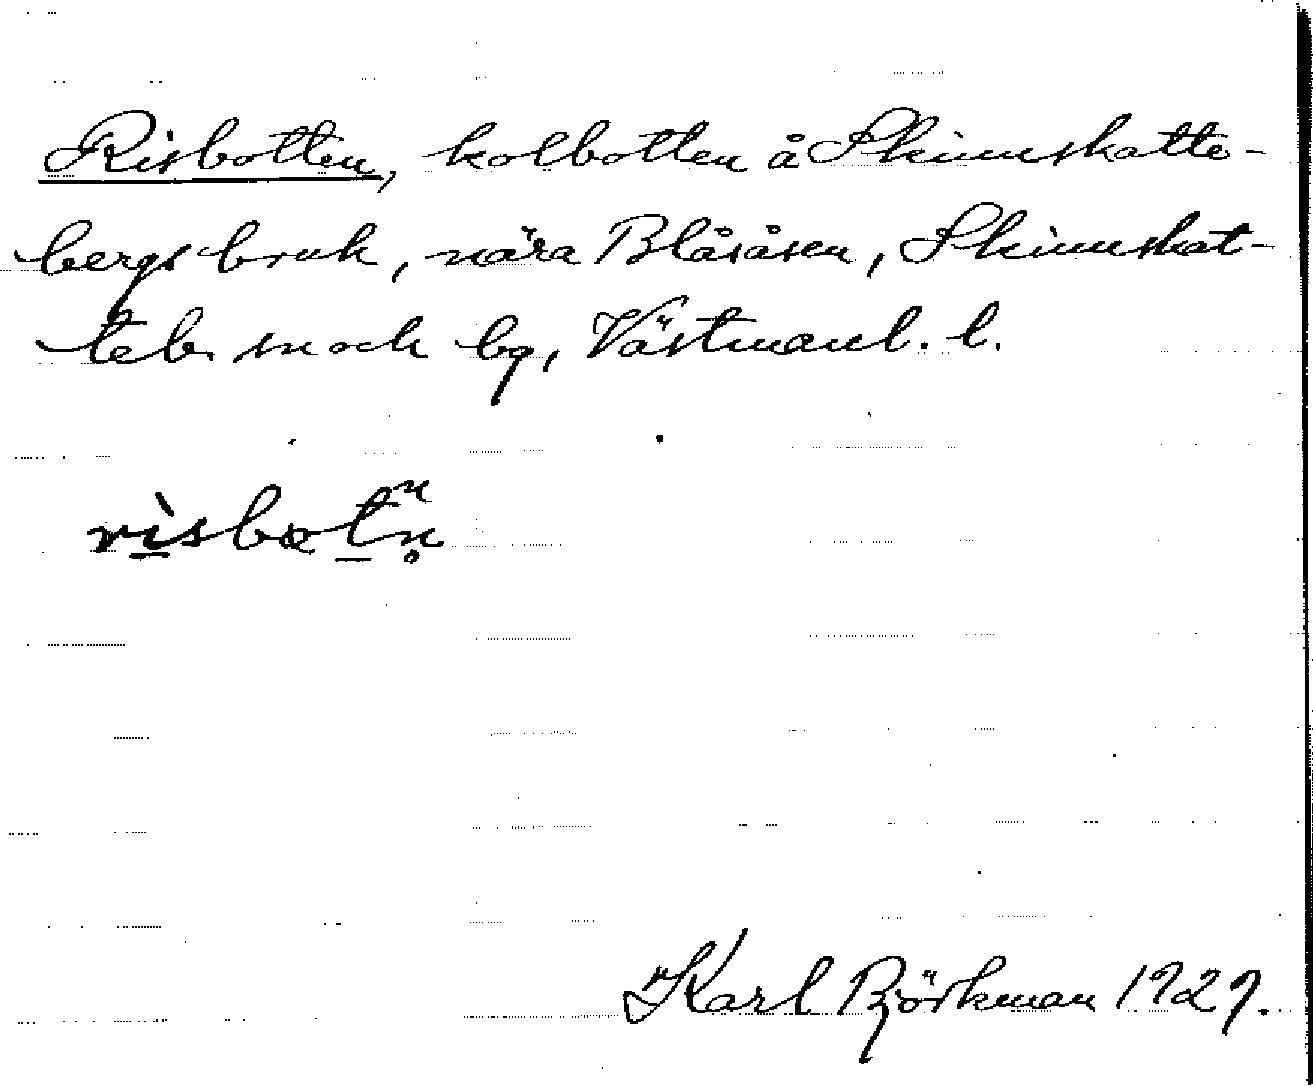 Risbotten, kolbotten å Skinnskatte-
bergs bruk, nära Blåsåsen, Skinnskat-
teb. sn och bg, Västmanl. l.
Karl Björkman 1929.